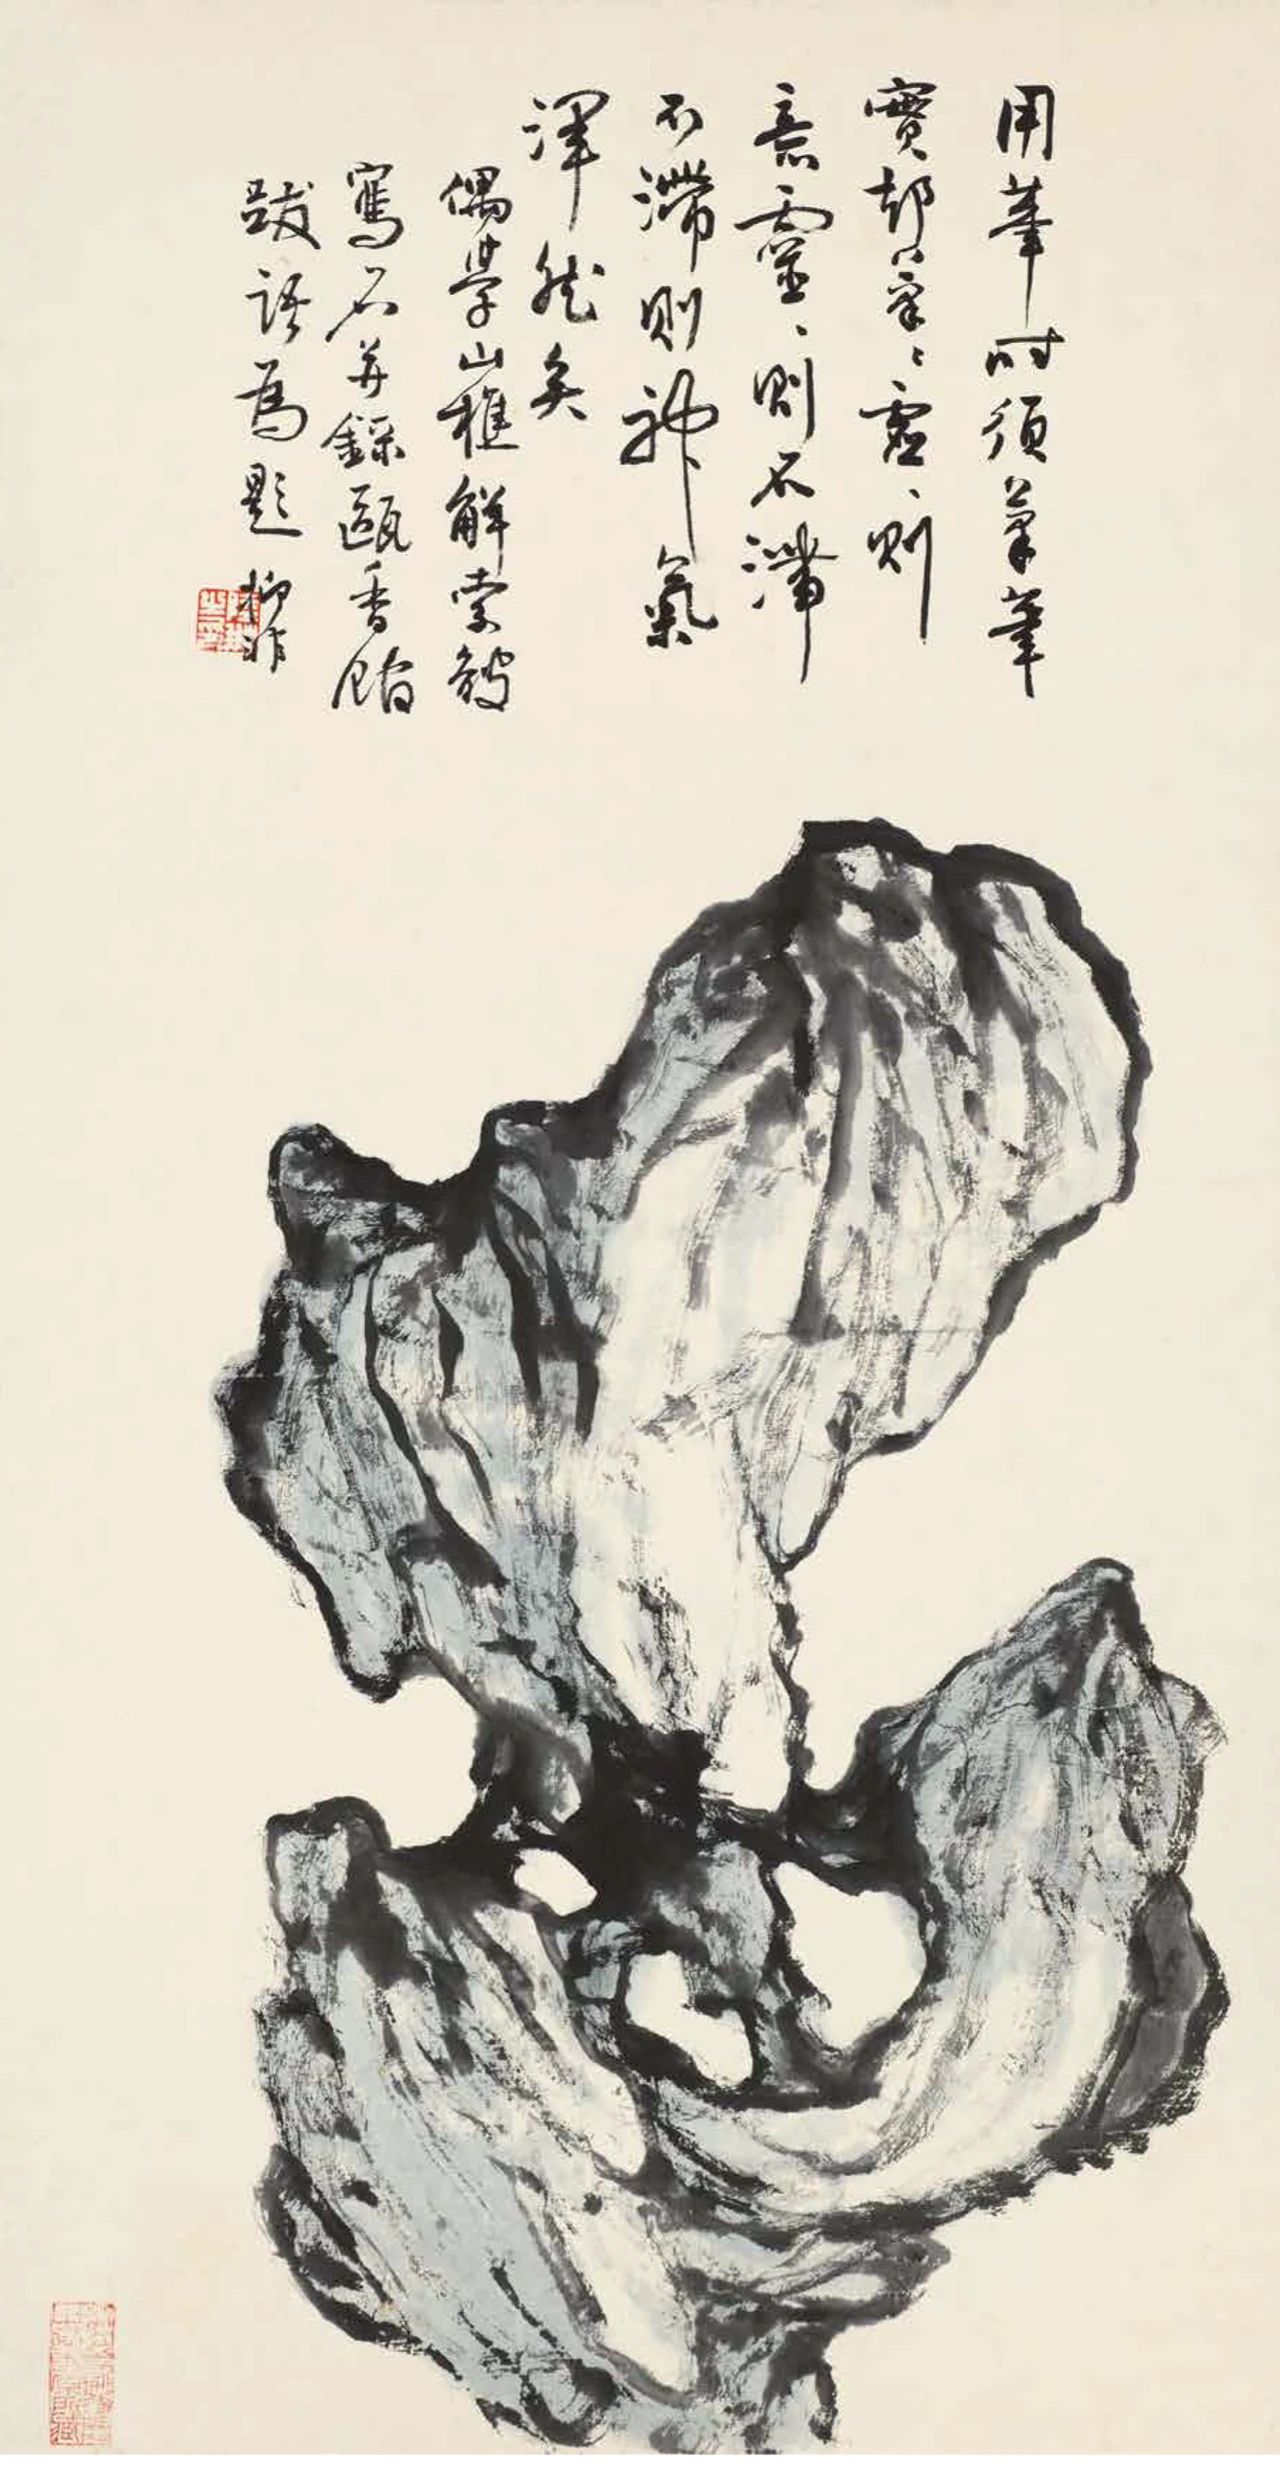 用筆時須筆筆
實却筆〻虛〻則
意靈〻則不滯
不滯則神氣
渾然矣
偶學山樵解索皴
寫石并錄甌香館
跋語為題 抑非